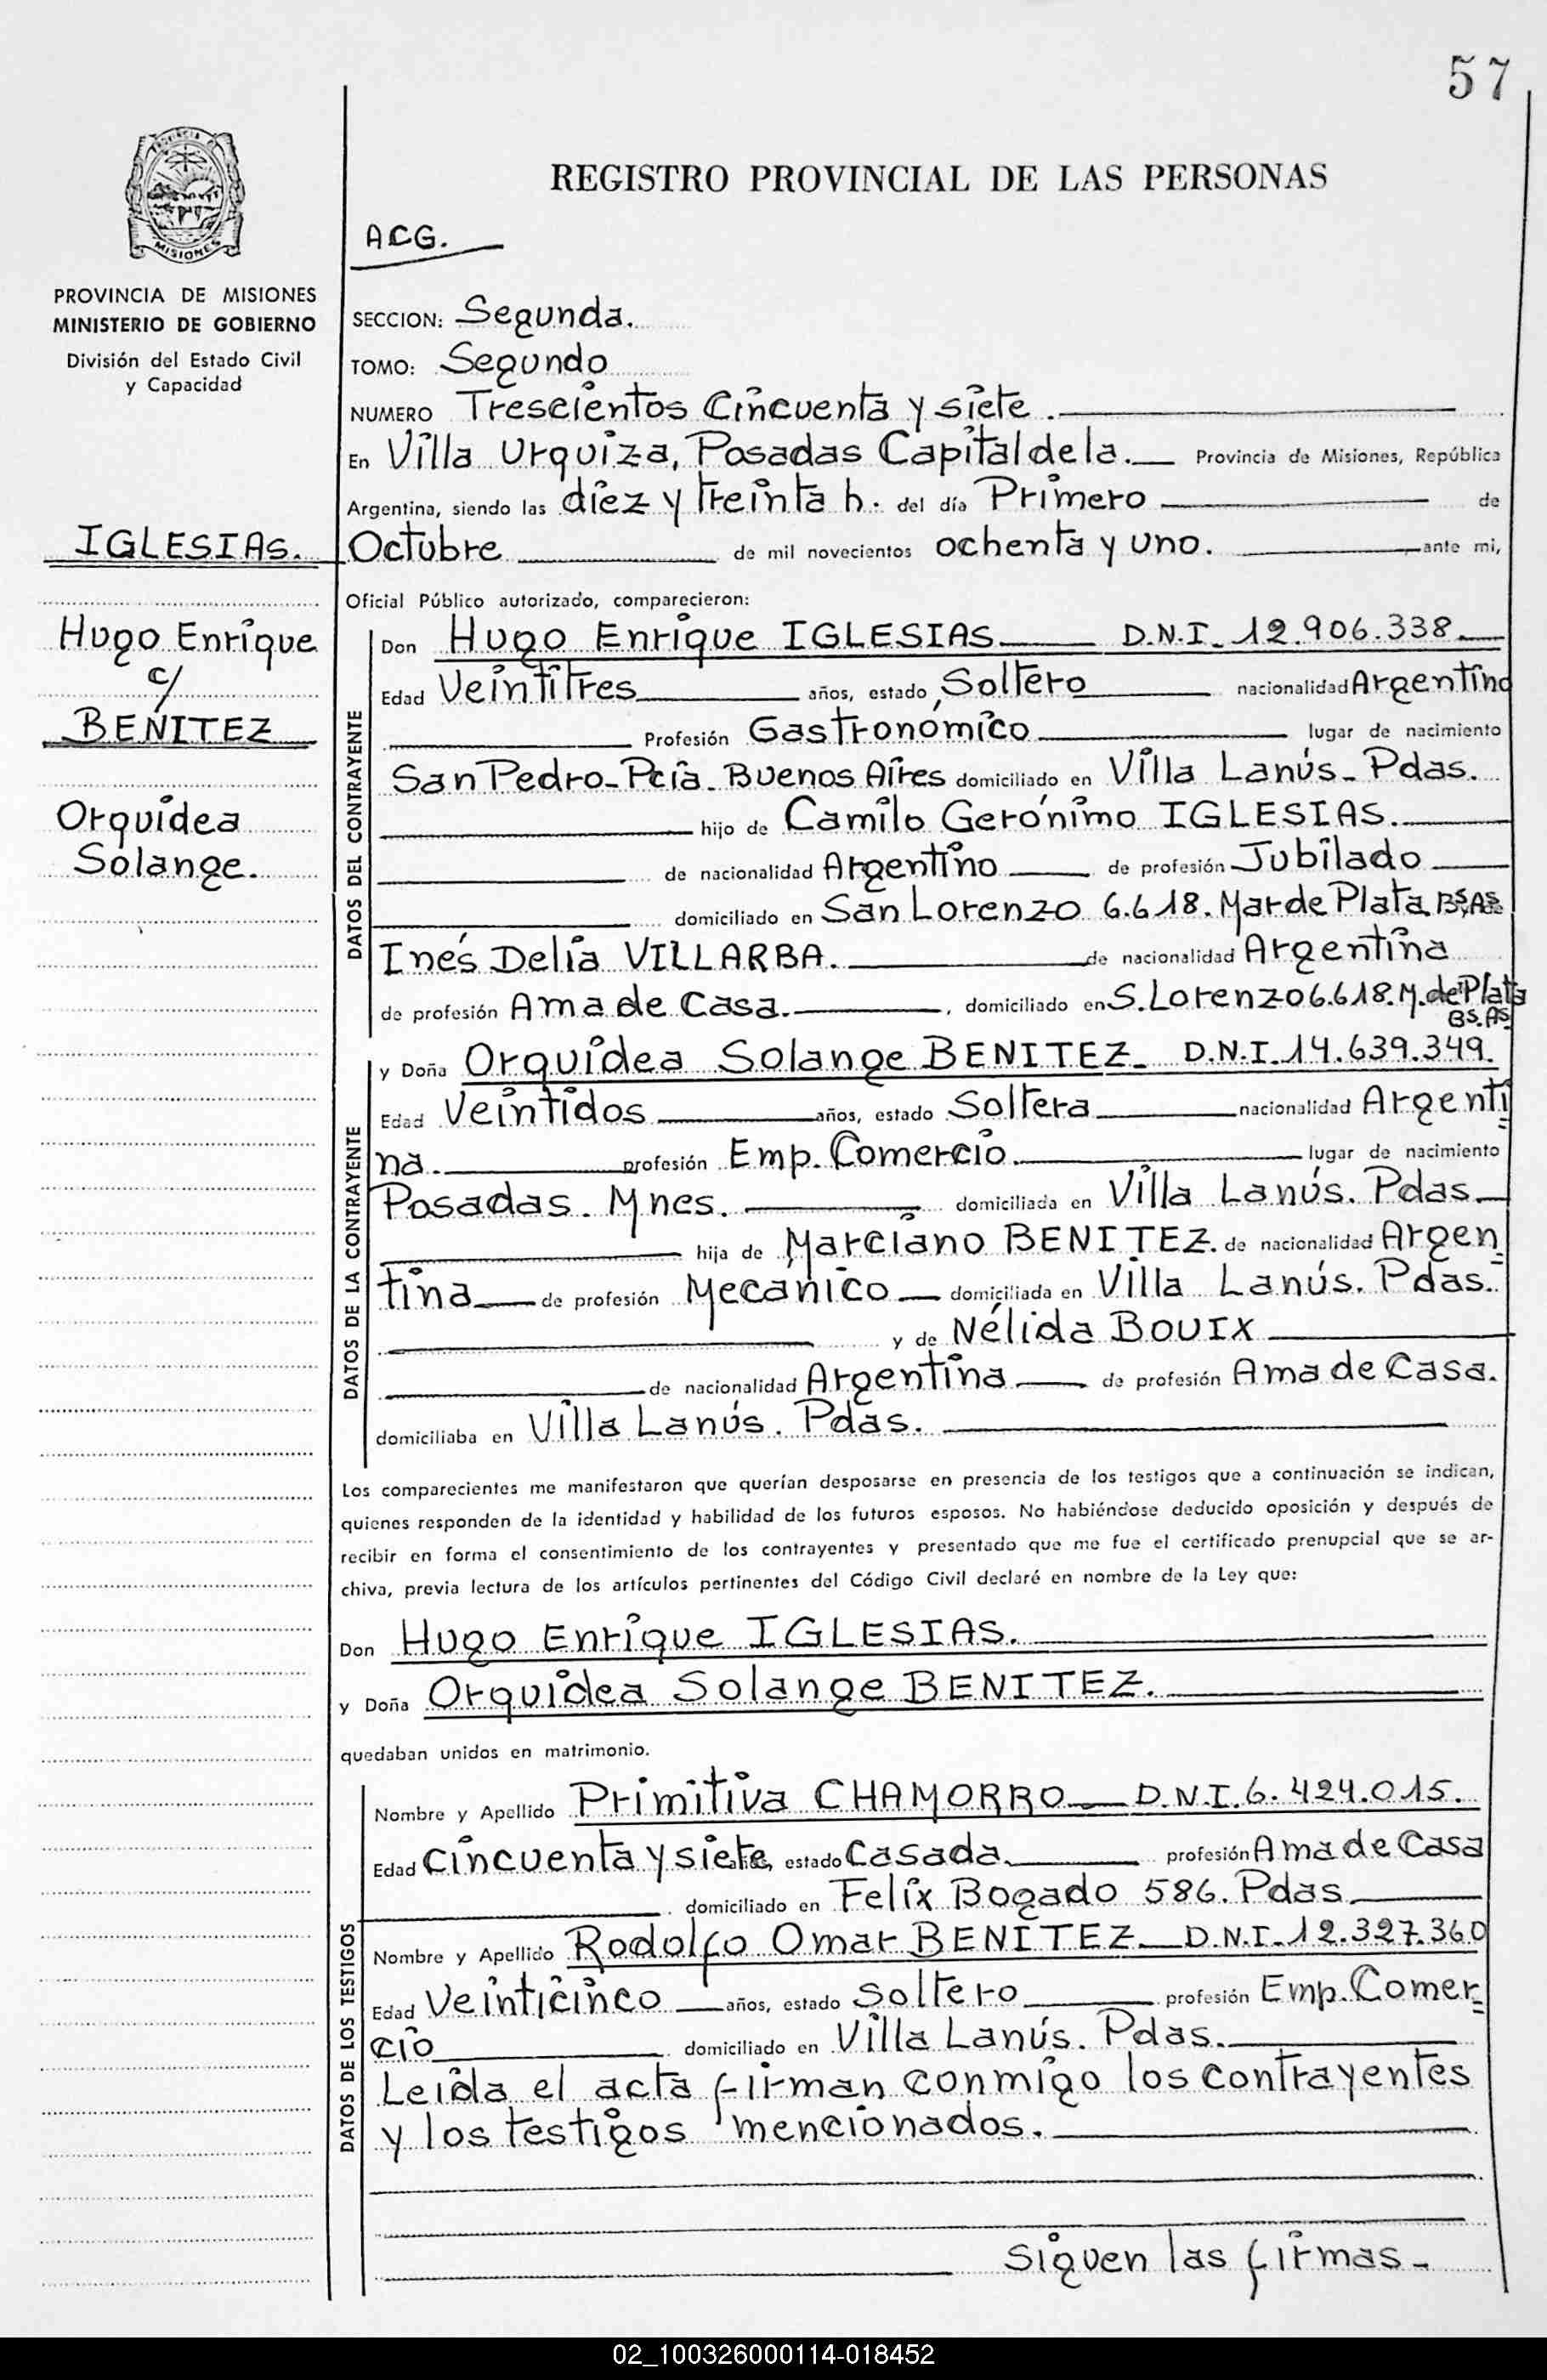 57
PROVINCIA D
MISIONES
PROVINCIA DE MISIONES
MINISTERIO DE GOBIERNO
División del Estado Civil
y Capacidad
IGLESIAS.
Hugo Enrique
c/
BENITEZ
Orquidea
Solange.
REGISTRO PROVINCIAL DE LAS PERSONAS
ACG.
SECCION: Segunda.
TOMO: Segundo
NUMERO Trescientos Cincuenta y siete.
En Villa Urquiza, Posadas Capital de la. Provincia de Misiones, República
Argentina, siendo las diez y treinta h. del día Primero de
Octubre de mil novecientos ochenta y uno. ante mi,
Oficial Público autorizado, comparecieron:
DATOS DEL CONTRAYENTE
Don Hugo Enrique IGLESIAS D.N.I. 12.906.338
Edad Veintitres años, estado Soltero nacionalidad Argentino
Profesión Gastronómico lugar de nacimiento
San Pedro-Pcia. Buenos Aires domiciliado en Villa Lanús- Pdas.
hijo de Camilo Gerónimo IGLESIAS.
de nacionalidad Argentino de profesión Jubilado
domiciliado en San Lorenzo 6.618. Mar de Plata. BS.AS. y de
Inés Delia VILLARBA. de nacionalidad Argentina
de profesión Ama de Casa. , domiciliado en S.Lorenzo 6.618. M. de Plata
BS. AS
DATOS DE LA CONTRAYENTE
y Doña Orquidea Solange BENITEZ D.N.I. 14.639.349.
Edad Veintidos años, estado Soltera nacionalidad Argenti
na. profesión Emp. Comercio. lugar de nacimiento
Posadas. Mnes. domiciliada en Villa Lanús. Pdas
hija de Marciano BENITEZ. de nacionalidad Argen
tina de profesión Mecánico domiciliada en Villa Lanús. Pdas.
y de Nélida BOUIX
de nacionalidad Argentina de profesión Ama de Casa.
domiciliaba en Villa Lanús. Pdas.
Los comparecientes me manifestaron que querían desposarse en presencia de los testigos que a continuación se indican,
quienes responden de la identidad y habilidad de los futuros esposos. No habiéndose deducido oposición y después de
recibir en forma el consentimiento de los contrayentes y presentado que me fue el certificado prenupcial que se ar-
chiva, previa lectura de los artículos pertinentes del Código Civil declaré en nombre de la Ley que:
Don Hugo Enrique IGLESIAS.
y Doña Orquidea Solange BENITEZ.
quedaban unidos en matrimonio.
DATOS DE LOS TESTIGOS
Nombre y Apellido Primitiva CHAMORRO D.N.I. 6.424.015.
Edad Cincuenta y siete, estado Casada profesión Ama de Casa
domiciliado en Felix Bogado 586. Pdas.
Nombre y Apellido Rodolfo Omar BENITEZ D.N.I. 12.327.360
Edad Veinticinco años, estado Soltero profesión Emp. Comer
cio domiciliado en Villa Lanús. Pdas.
Leida el acta firman conmigo los contrayentes
y los testigos mencionados.
Siguen las firmas-
02_100326000114-018452